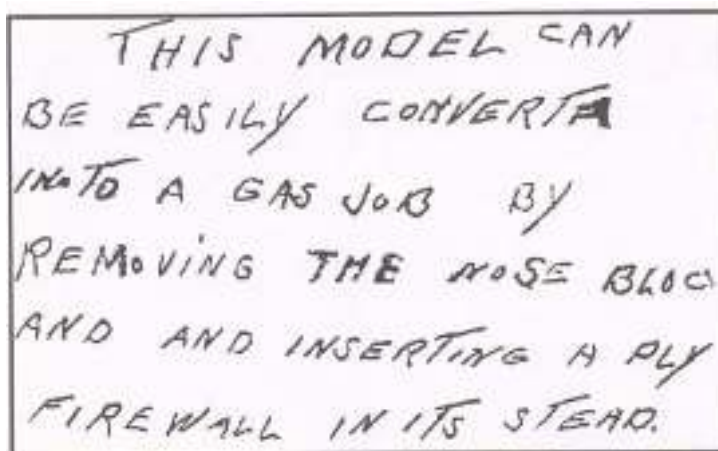 THIS MODEL CAN
BE EASILY CONVERTA
INOTO A GAS JOB BY
REMOVING THE NOSE BLOC
AND AND INSERTING A PLY
FIREWALL IN ITS STEAD.